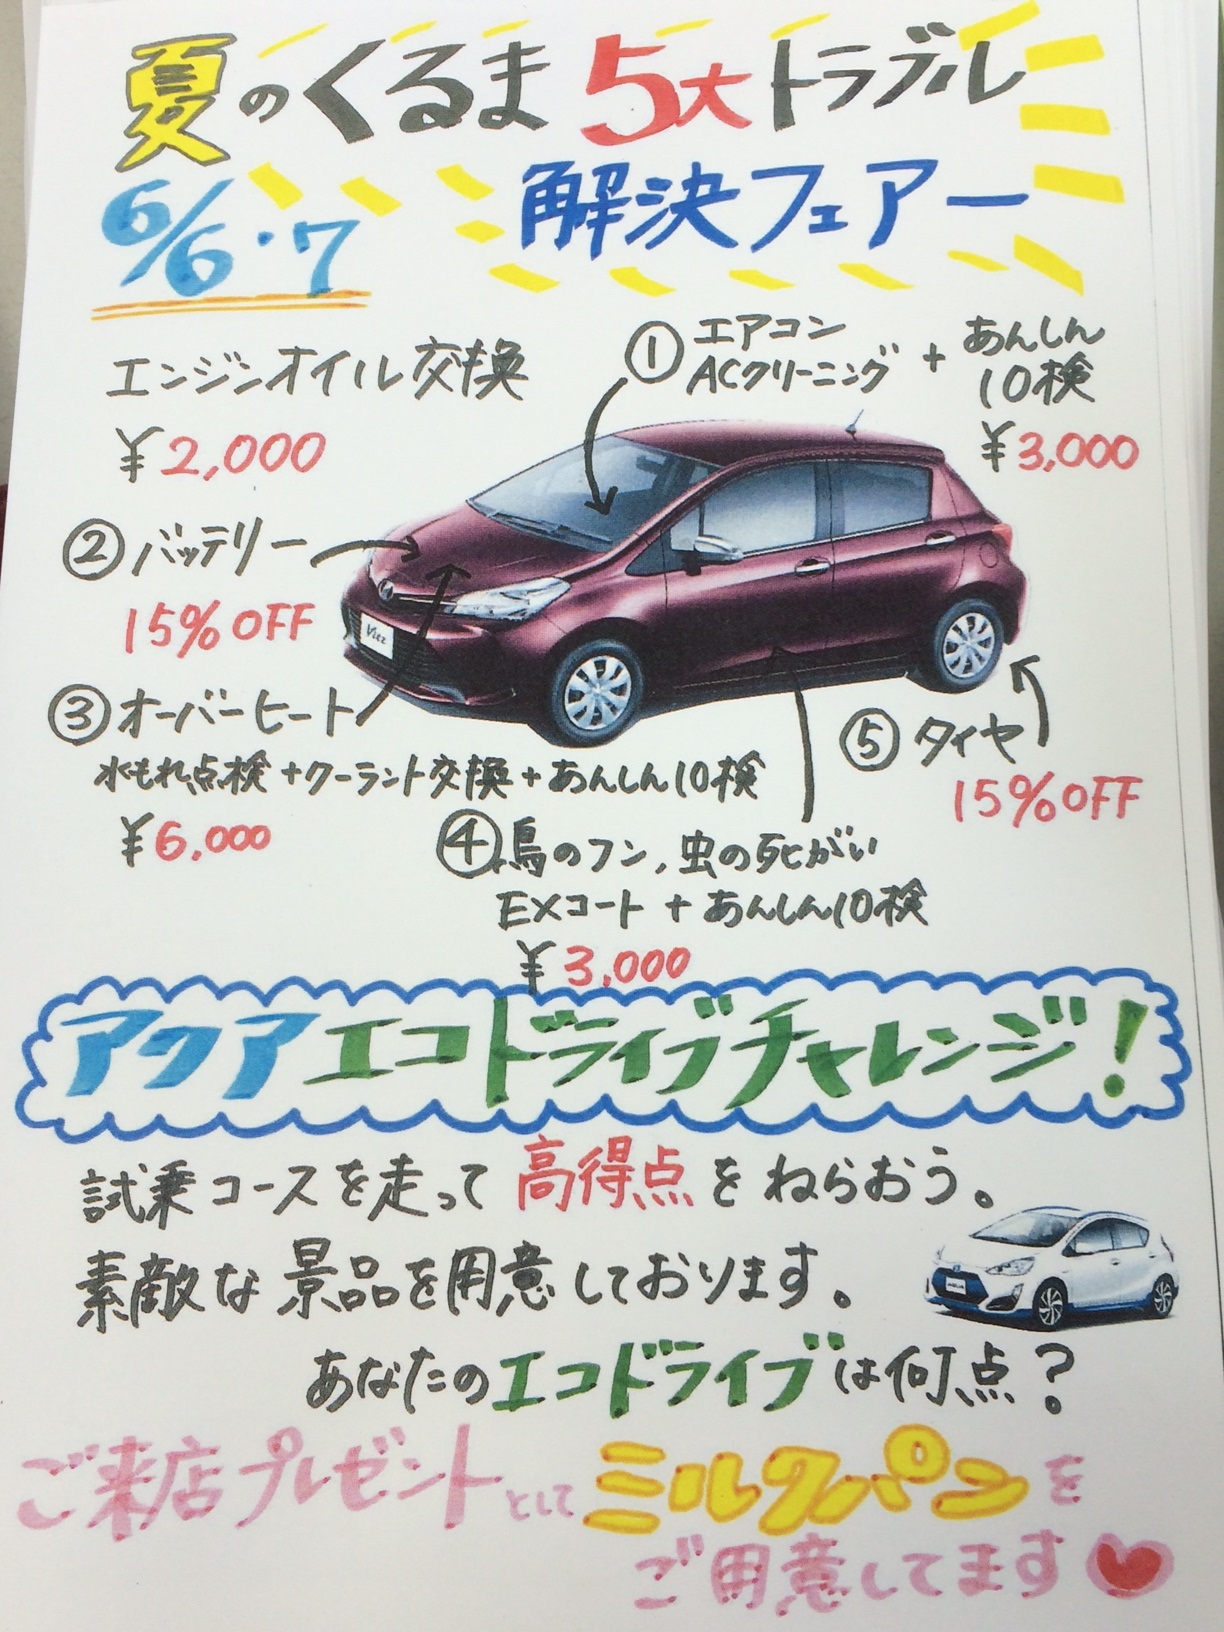 夏のくるま5大トラブル
解決フェアー
6/6・7
エンジンオイル交換
¥2,000
①エアコン
ACクリーニング + あんしん
10検
¥3,000
②バッテリー
15%OFF
Vitz
③オーバーヒート
水もれ点検+クーラント交換+あんしん10検
¥6,000
④鳥のフン,虫の死がい
EXコート + あんしん10検
¥3,000
⑤タイヤ
15%OFF
アクアエコドライブチャレンジ!
試乗コースを走って高得点をねらおう。
素敵な景品を用意しております。
あなたのエコドライブは何点?
ご来店プレゼントとしてミルクパンを
ご用意してます